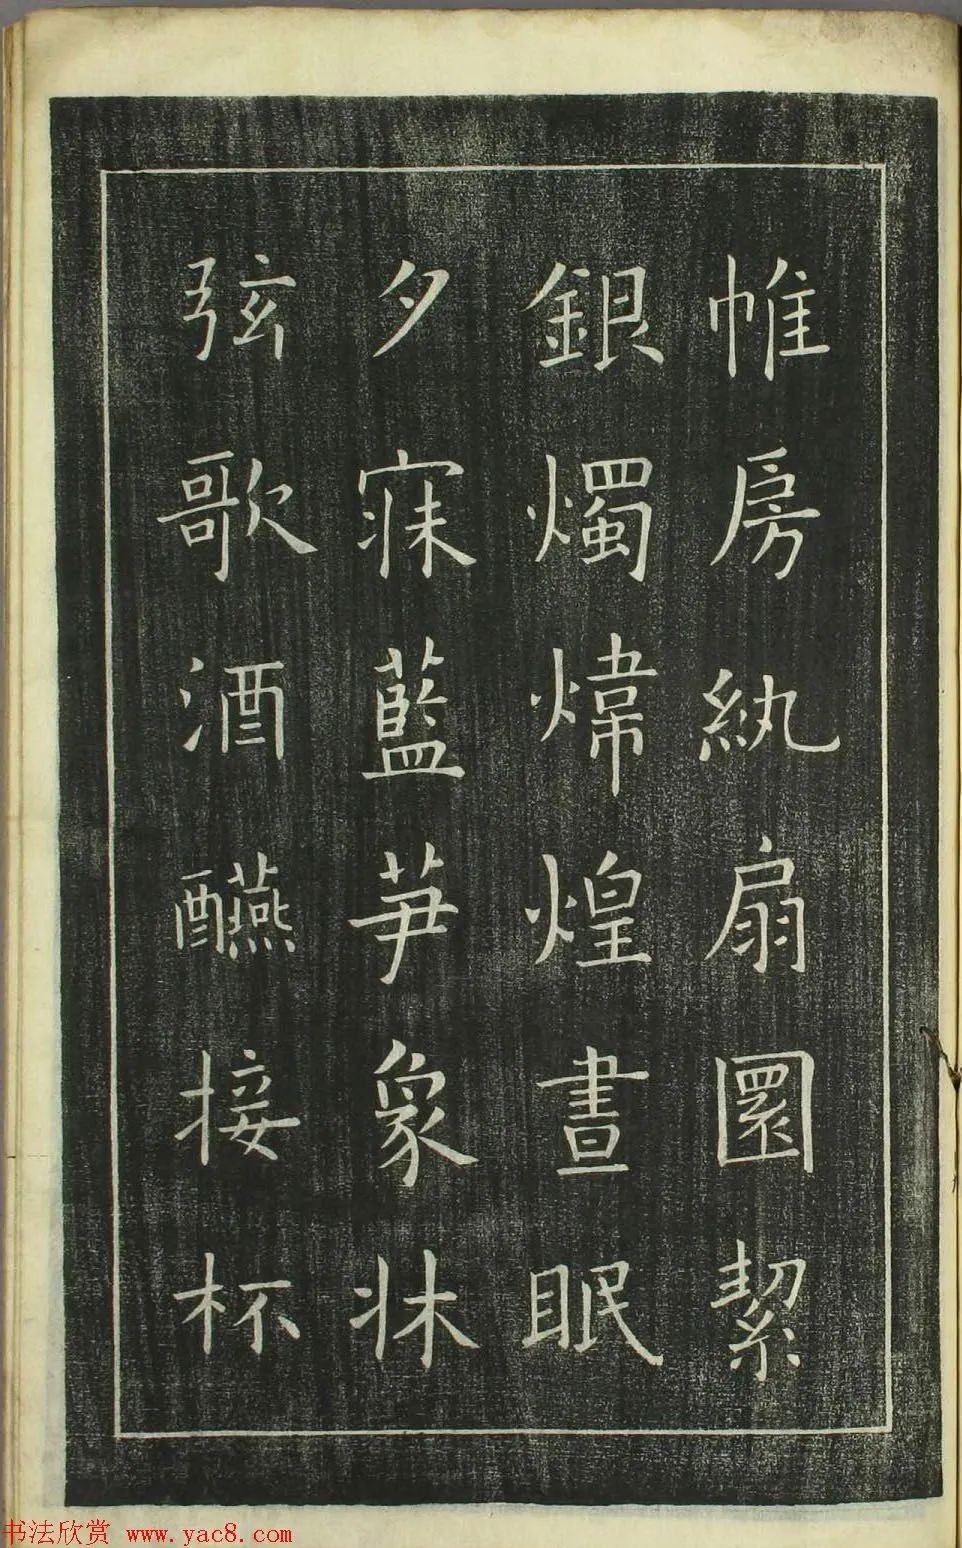 帷房紈扇圜絜
銀燭煒煌晝眠
夕寐藍芛象牀
弦歌酒醼接杯
书法欣赏 www.yac8.com